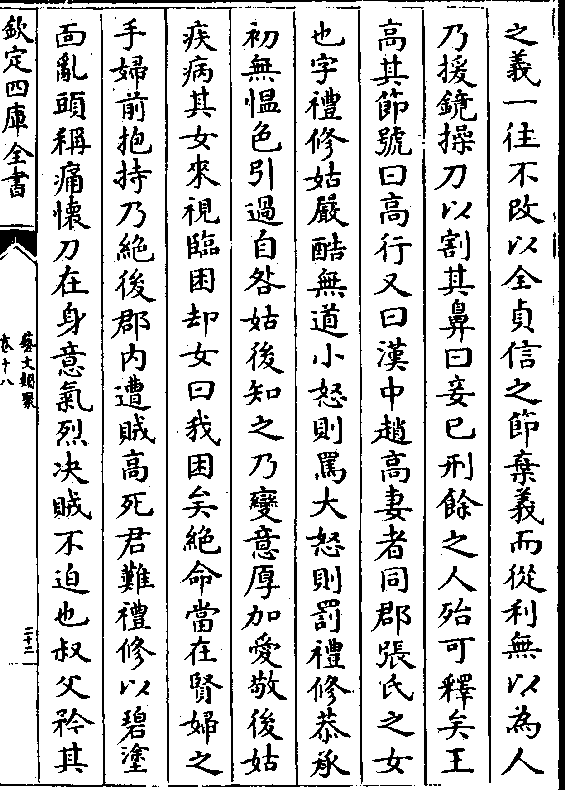 之義一往不改以全貞信之節棄義而從利無以為人
乃援鏡操刀以割其鼻曰妾已刑餘之人殆可釋矣王
高其節號曰高行又曰漢中趙高妻者同郡張氏之女
也字禮修姑嚴酷無道小怒則罵大怒則罰禮修恭承
初無愠色引過自咎姑後知之乃變意厚加愛敬後姑
疾病其女來視臨困却女曰我困矣絶命當在賢婦之
手婦前抱持乃絶後郡内遭賊高死君難禮修以碧塗
面亂頭稱痛懷刀在身意氣烈决賊不迫也叔父矜其
欽定四庫全書
藝文類聚
卷十八
二十二